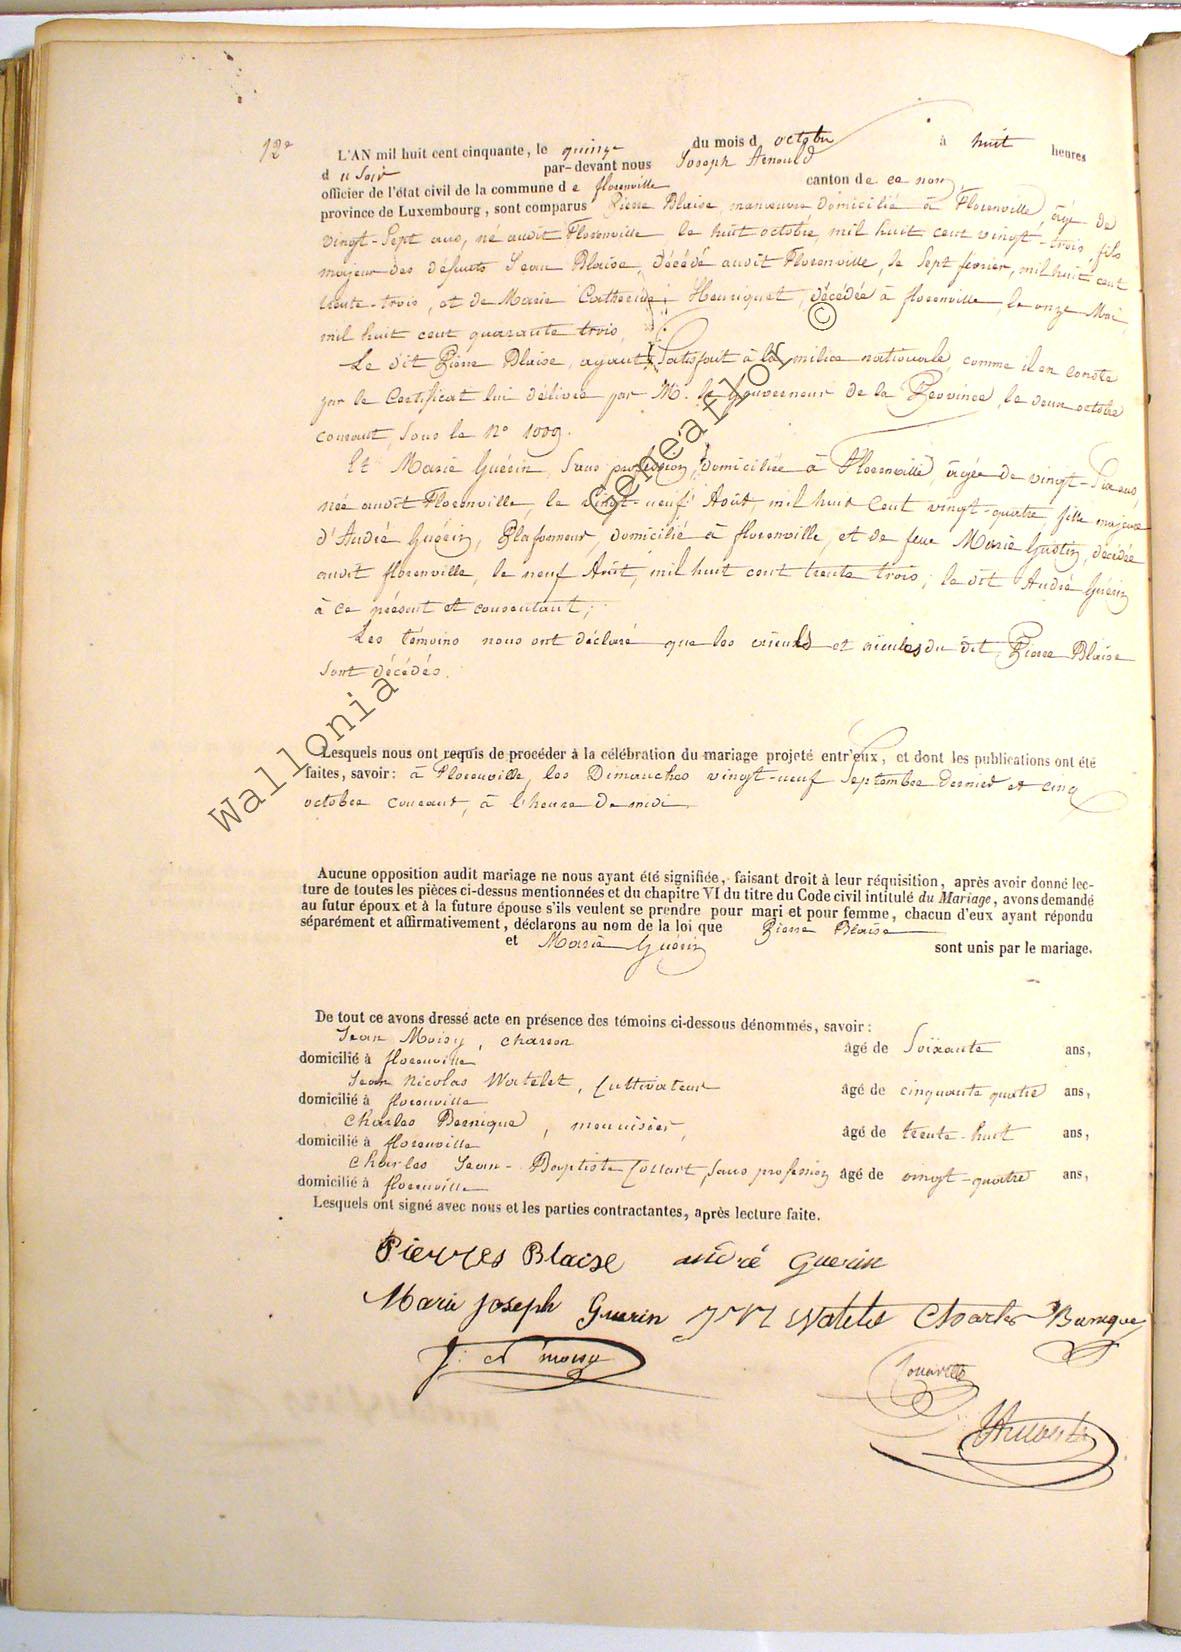 12e
L'AN mil huit cent cinquante, le quinze du mois d octobre à huit heures
d u Soir par-devant nous Joseph Arnould
officier de l'état civil de la commune d e florenville canton de ce nom,
province de Luxembourg, sont comparus Pierre Blaise, manœuvre domicilié à Florenville, âgé de
vingt-Sept ans, né audit Florenville le huit octobre, mil huit cent vingt-trois, fils
majeur des défunts Jean Blaise, décédé audit Florenville, le Sept février, mil huit cent
trente-trois, et de Marie Catherine Henriquet, décédée à florenville, le onze Mai,
mil huit cent quarante trois,
Le dit Pierre Blaise, ayant Satisfait à la milice nationale, comme il en conste
par le Certificat lui délivré par M. le Gouverneur de la Province, le deux octobre
courant, Sous le No 1009.
Et Marie Guérin, Sans profession, domiciliée à Florenville, âgée de vingt-Six ans,
née audit Florenville, le vingt-neuf Août, mil huit Cent vingt-quatre, fille majeure
d'André Guérin, Plafonneur, domicilié à florenville, et de feue Marie Gustin, décédée
audit florenville, le neuf Août, mil huit cent trente trois; le dit André Guérin
à ce présent et consentant;
Les témoins nous ont déclaré que les aïeuls et aïeules du dit Pierre Blaise
Sont décédés.
Lesquels nous ont requis de procéder à la célébration du mariage projeté entr'eux, et dont les publications ont été
faites, savoir: à Florenville, les Dimanches vingt-neuf Septembre dernier et cinq
octobre courant, à l'heure de midi
Aucune opposition audit mariage ne nous ayant été signifiée, faisant droit à leur réquisition, après avoir donné lec-
ture de toutes les pièces ci-dessus mentionnées et du chapitre VI du titre du Code civil intitulé du Mariage, avons demandé
au futur époux et à la future épouse s'ils veulent se prendre pour mari et pour femme, chacun d'eux ayant répondu
séparément et affirmativement, déclarons au nom de la loi que Pierre Blaise
et Marie Guérin sont unis par le mariage.
De tout ce avons dressé acte en présence des témoins ci-dessous dénommés, savoir:
Jean Moisy, charron âgé de Soixante ans,
domicilié à florenville
Jean Nicolas Watelet, Cultivateur âgé de cinquante quatre ans,
domicilié à florenville
Charles Bernique, menuisier, âgé de trente-huit ans,
domicilié à florenville
Charles Jean-Baptiste Collart, Sans profession âgé de vingt-quatre ans,
domicilié à florenville
Lesquels ont signé avec nous et les parties contractantes, après lecture faite.
Pierres Blaise andré Guerin
Marie Joseph Guerin J N Watelet Charles Bernique
J. moisy
JArnould
Wallonia Geneaflor ©